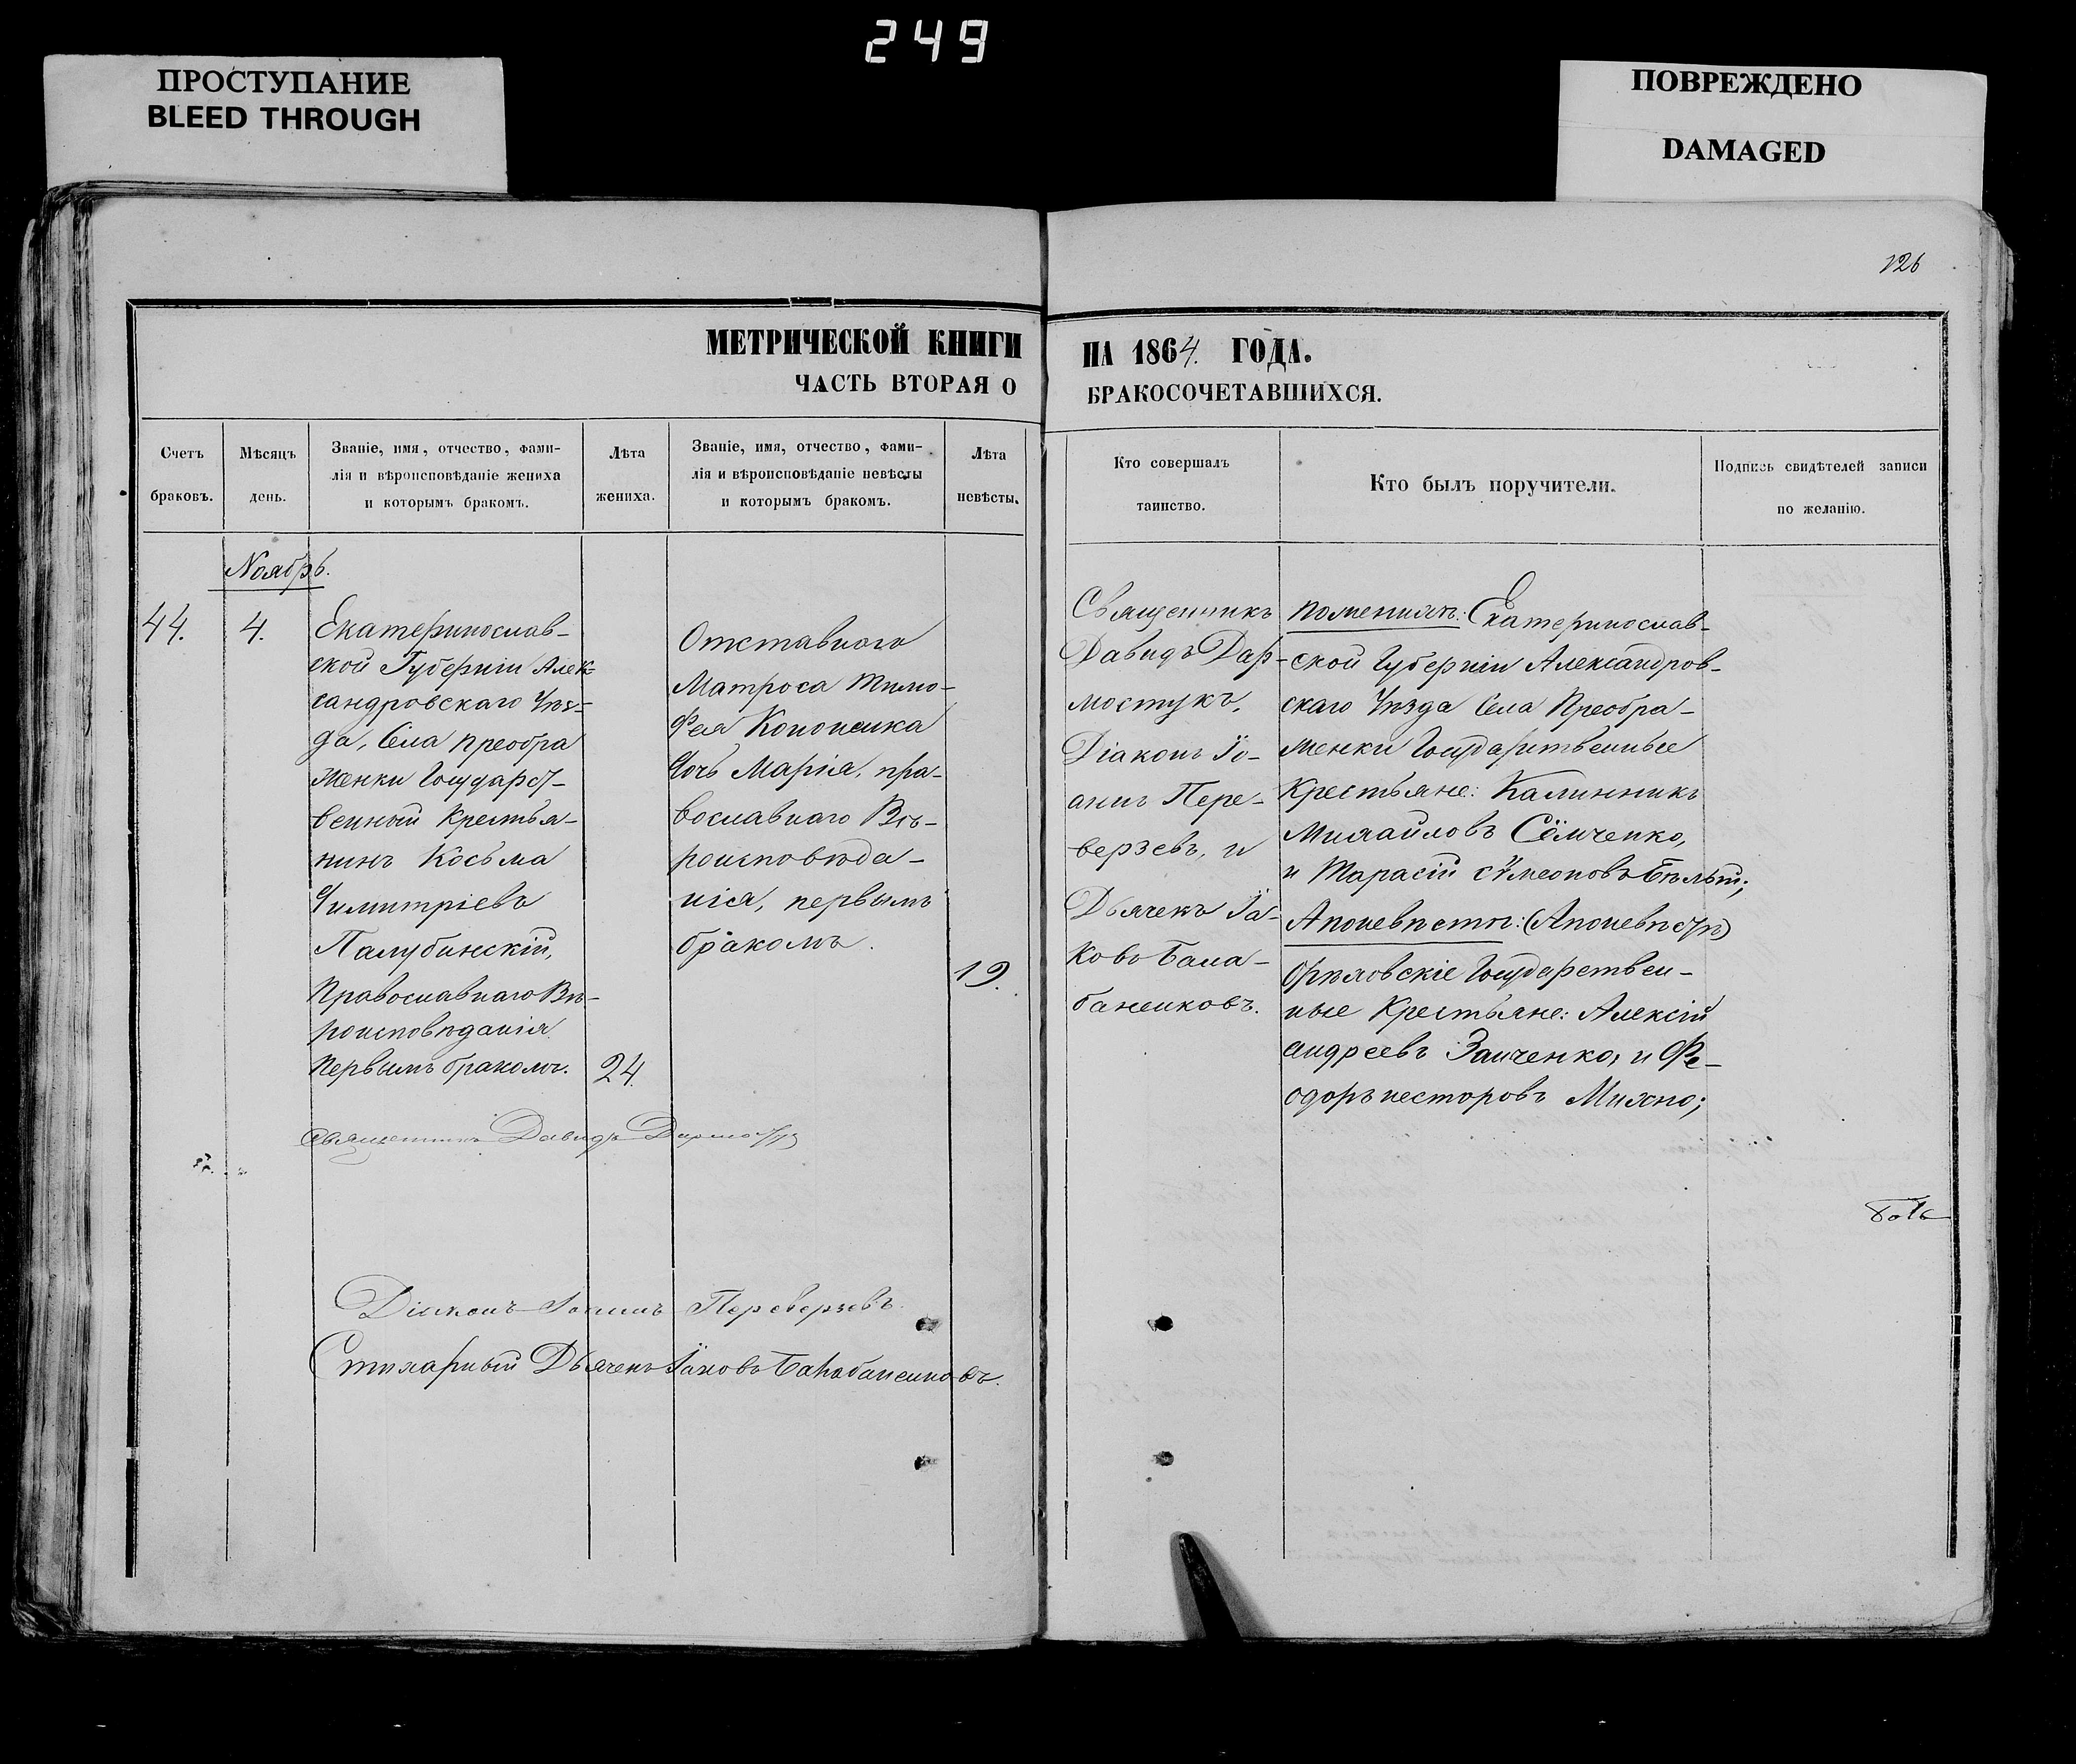 249
ПРОСТУПАНИЕ
BLEED THROUGH
ПОВРЕЖДЕНО
DAMAGED
126
МЕТРИЧЕСКОЙ КНИГИ
ЧАСТЬ ВТОРАЯ О
НА 1864. ГОДА.
БРАКОСОЧЕТАВШИХСЯ.
Счетъ
браковъ.
Мѣсяцъ
день.
Званіе, имя, отчество, фами-
лія и вѣроисповѣданіе жениха
и которымъ бракомъ.
Лѣта
жениха.
Званіе, имя, отчество, фами-
лія и вѣроисповѣданіе невѣсты
и которымъ бракомъ.
Лѣта
невѣсты.
Кто совершалъ
таинство.
Кто былъ поручители.
Подпись свидѣтелей записи
по желанію.
Ноябрь.
44.
4.
Екатеринослав-
ской Губерніи Алек-
сандровскаго Уѣз-
да, Села Преобра
женки Государст-
венный Крестья-
нинъ Косьма
Димитріевъ
Палубинскій,
Православнаго Вѣ-
роисповѣданія
первымъ бракомъ.
24.
Отставнаго
Матроса Тимо-
фея Кононенка
дочь Марія, пра-
вославнаго Вѣ-
роисповѣда-
нія, первымъ
бракомъ.
19.
Священникъ
Давидъ Дар-
мостукъ,
Діаконъ Іо-
аннъ Пере-
верзевъ, и
Дьячекъ Іа-
ковъ Бала-
баненковъ.
По женихѣ: Екатеринослав-
ской Губерніи Александров-
скаго Уѣзда Села Преобра-
женки Государственные
Крестьяне: Калинникъ
Михайловъ Сёмченко,
и Тарасій Сѵмеоновъ Бѣлый;
А по невѣстѣ: (А по невѣстѣ)
Орѣховскіе Государствен-
ные Крестьяне: Алексій
Андреевъ Заиченко, и Фе-
одоръ Несторовъ Михно;
Священникъ Давидъ
Діаконъ Іоаннъ Переверзевъ.
Стихарный Дьячекъ Іаковъ Балабаненковъ.